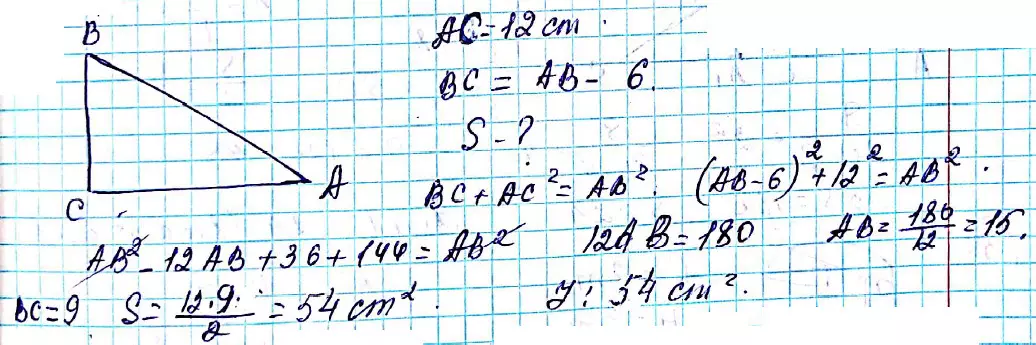 B
AC = 12 cm.
BC = AB - 6.
S - ?
C
A
BC + AC² = AB². (AB - 6)² + 12² = AB².
AB² - 12AB + 36 + 144 = AB² 12AB = 180 AB = 180/12 = 15.
BC = 9. S = 12·9/2 = 54 cm². J: 54 cm².